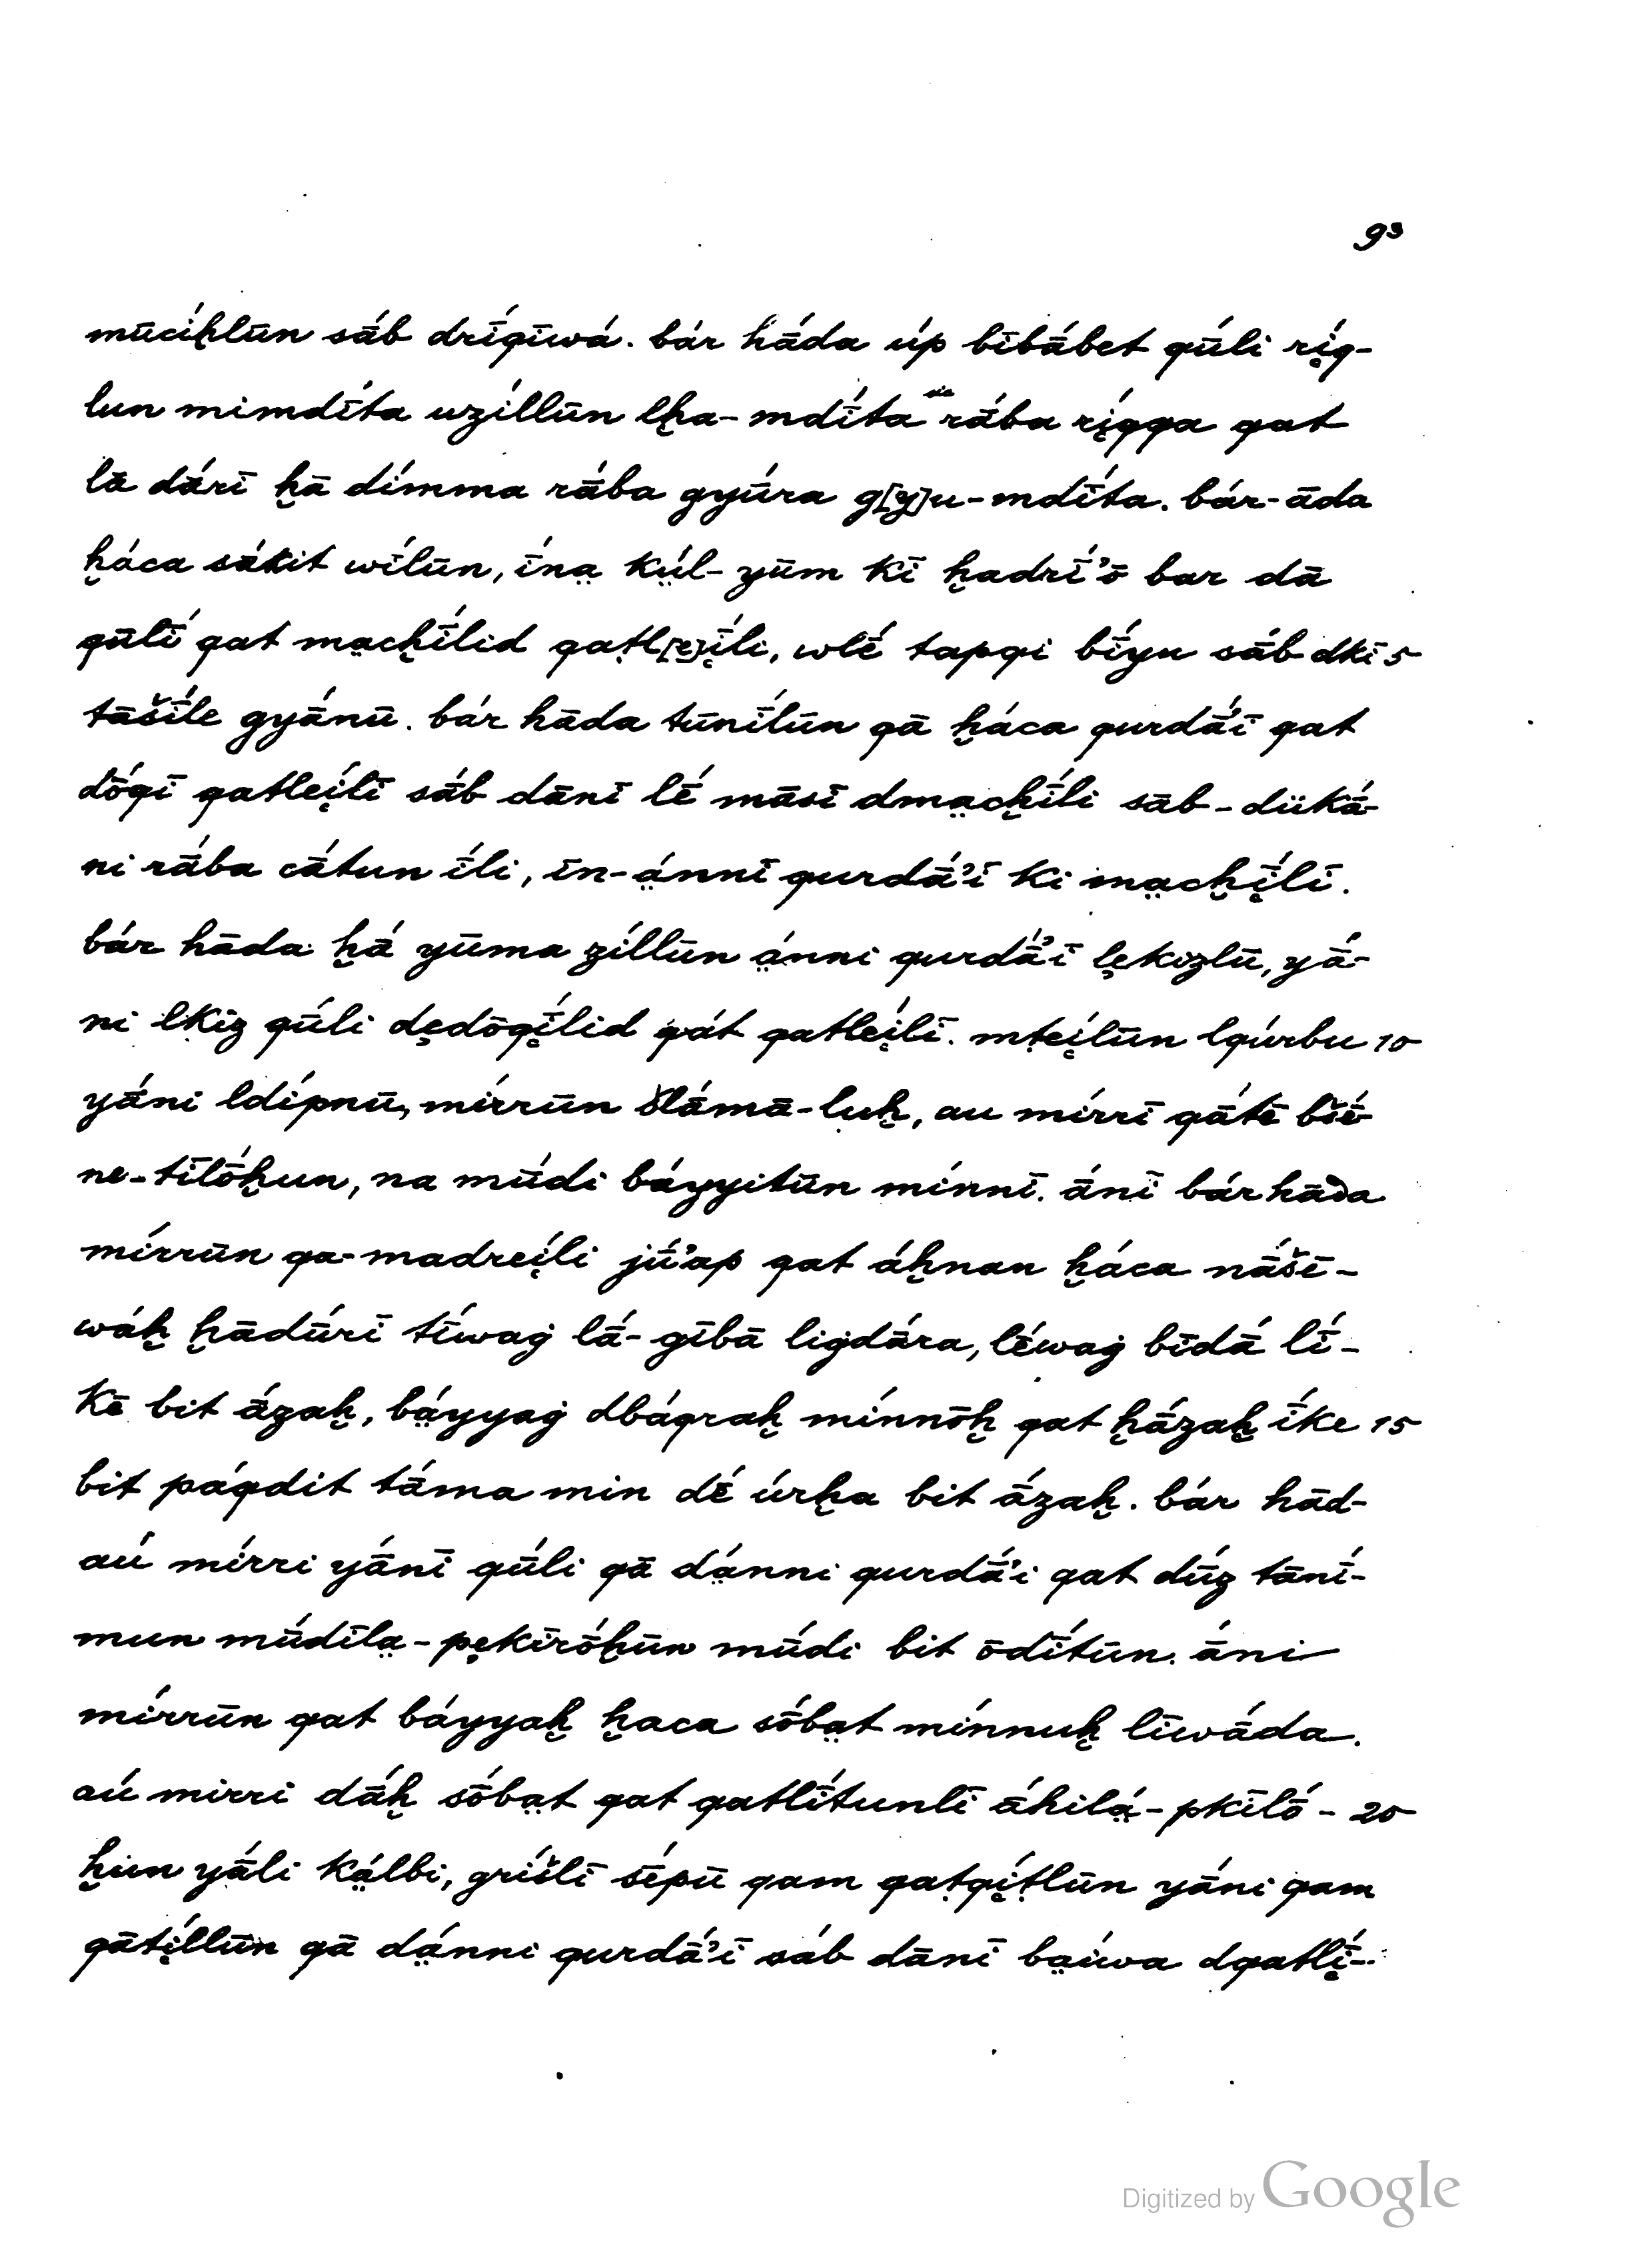 93
mūcíḫlūn sāb drī́qīwá. bár hā́da úp bībā́bet qū́li rị́q-
lun mimdī́ta uzíllūn lḫa-mdī́ta rā́ba rị́qqa qat
lā dā́rī ḫā dímma rā́ba gyū́ra g[y]u-mdī́ta. bár-āda
ḫáca sā́kit wī́lūn, ī́na̤ kṳ́l-yūm kī ḫadrī́'ō bar dā
qūlī́ qat ma̤cḫī́lid qaṭl[e]ị́li, wlḗ tapqi bī́yu sāb dkī 5
tāšī́le gyānū. bár hāda tūnī́lūn qā ḫáca qurdā́'ī qat
dṓqī qatleị́lī sā́b dānī lḗ māsī dma̤cḫī́li sāb-dükā́-
ni rā́ba cā́tun ī́li, īn-á̤nnī qurdā́'ī ki ma̤cḫị́lī.
bár hāda ḫā́ yūma zíllūn á̤nni qurdā́'ī lẹkizlū, yā́-
ni lkiz qū́li dẹdōqị́lid qát qatleị́lī. mṭeị́lūn lqúrbu 10
yā́ni ldípnū, mírrūn šlā́mā-luḫ, au mírrī qā́tē bšḗ-
ne-tīlṓḫun, na mū́di báyyitūn mínnī. ā́nī bár hāda
mírrūn qa-madreị́li jū́'ap qat áḫnan ḫáca nā́šē-
wáḫ ḫādū́rī tī́waġ lā́-gībā ligdā́ra, lḗwaġ bīdā́ lī́-
kē bit ā́zaḫ, bá̤yyaġ dbáqraḫ mínnōḫ qat ḫā́zaḫ ī́ke 15
bit páqdit tā́ma min dḗ úrḫa bit ā́zaḫ. bár hād-
aú mírri yā́nī qū́li qā dá̤nni qurdā́'i qat dū́z tānī́-
mun mū́dīla̤-pẹkīrṓḫūn mū́di bit ōdī́tūn. ā́ni
mírrūn qat báyyaḫ ḫaca sṓba̤t mínnuḫ līwā́da.
aú mirri dā́ḫ sṓba̤t qat qatlī́tunlī āhilá̤-pkīlṓ- 20
ḫun yā́li ká̤lbi, gríšlī sḗpū qam qaṭqị́ṭlūn yā́ni qam
qātị́llūn qā dá̤nni qurdā́'ī sáb dānī ba̤úwa dqatlị́-
Digitized by Google